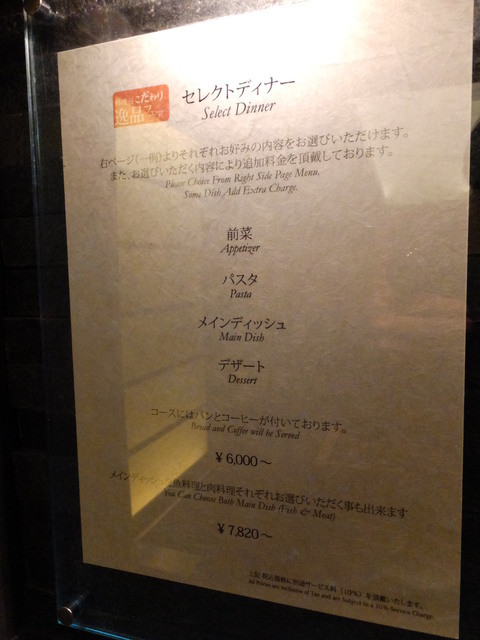 こだわり
逸品フェア
セレクトディナー
Select Dinner
右ページ(一例)よりそれぞれお好みの内容をお選びいただけます。
また、お選びいただく内容により追加料金を頂戴しております。
Please Choice From Right Side Page Menu.
Some Dish Add Extra Charge.
前菜
Appetizer
パスタ
Pasta
メインディッシュ
Main Dish
デザート
Dessert
コースにはパンとコーヒーが付いております。
Bread and Coffee will be Served
¥6,000～
メインディッシュは魚料理と肉料理それぞれお選びいただく事も出来ます
You Can Choose Both Main Dish (Fish & Meat)
¥7,820～
上記税込価格に別途サービス料(10%)を頂戴いたします。
All Prices are inclusive of Tax and are Subject to a 10% Service Charge.